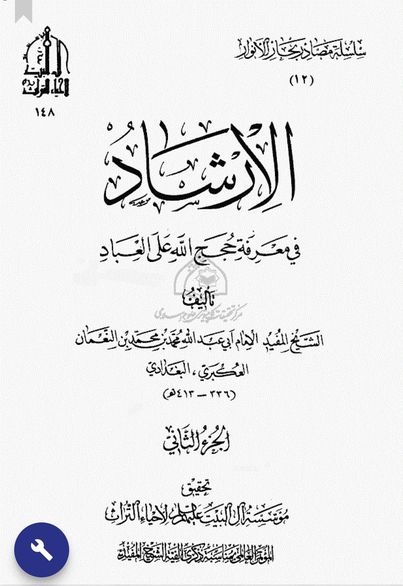 سلسلة مصادر بحار الأنوار
(١٢)
١٤٨
الإرشاد
في معرفة حجج الله على العباد
تأليف
الشيخ المفيد الإمام أبي عبد الله محمد بن محمد بن النعمان
العكبري، البغدادي
(٣٣٦ - ٤١٣ هـ)
الجزء الثاني
تحقيق
مؤسسة آل البيت عليهم السلام لإحياء التراث
المؤتمر العالمي بمناسبة ذكرى ألفية الشيخ المفيد